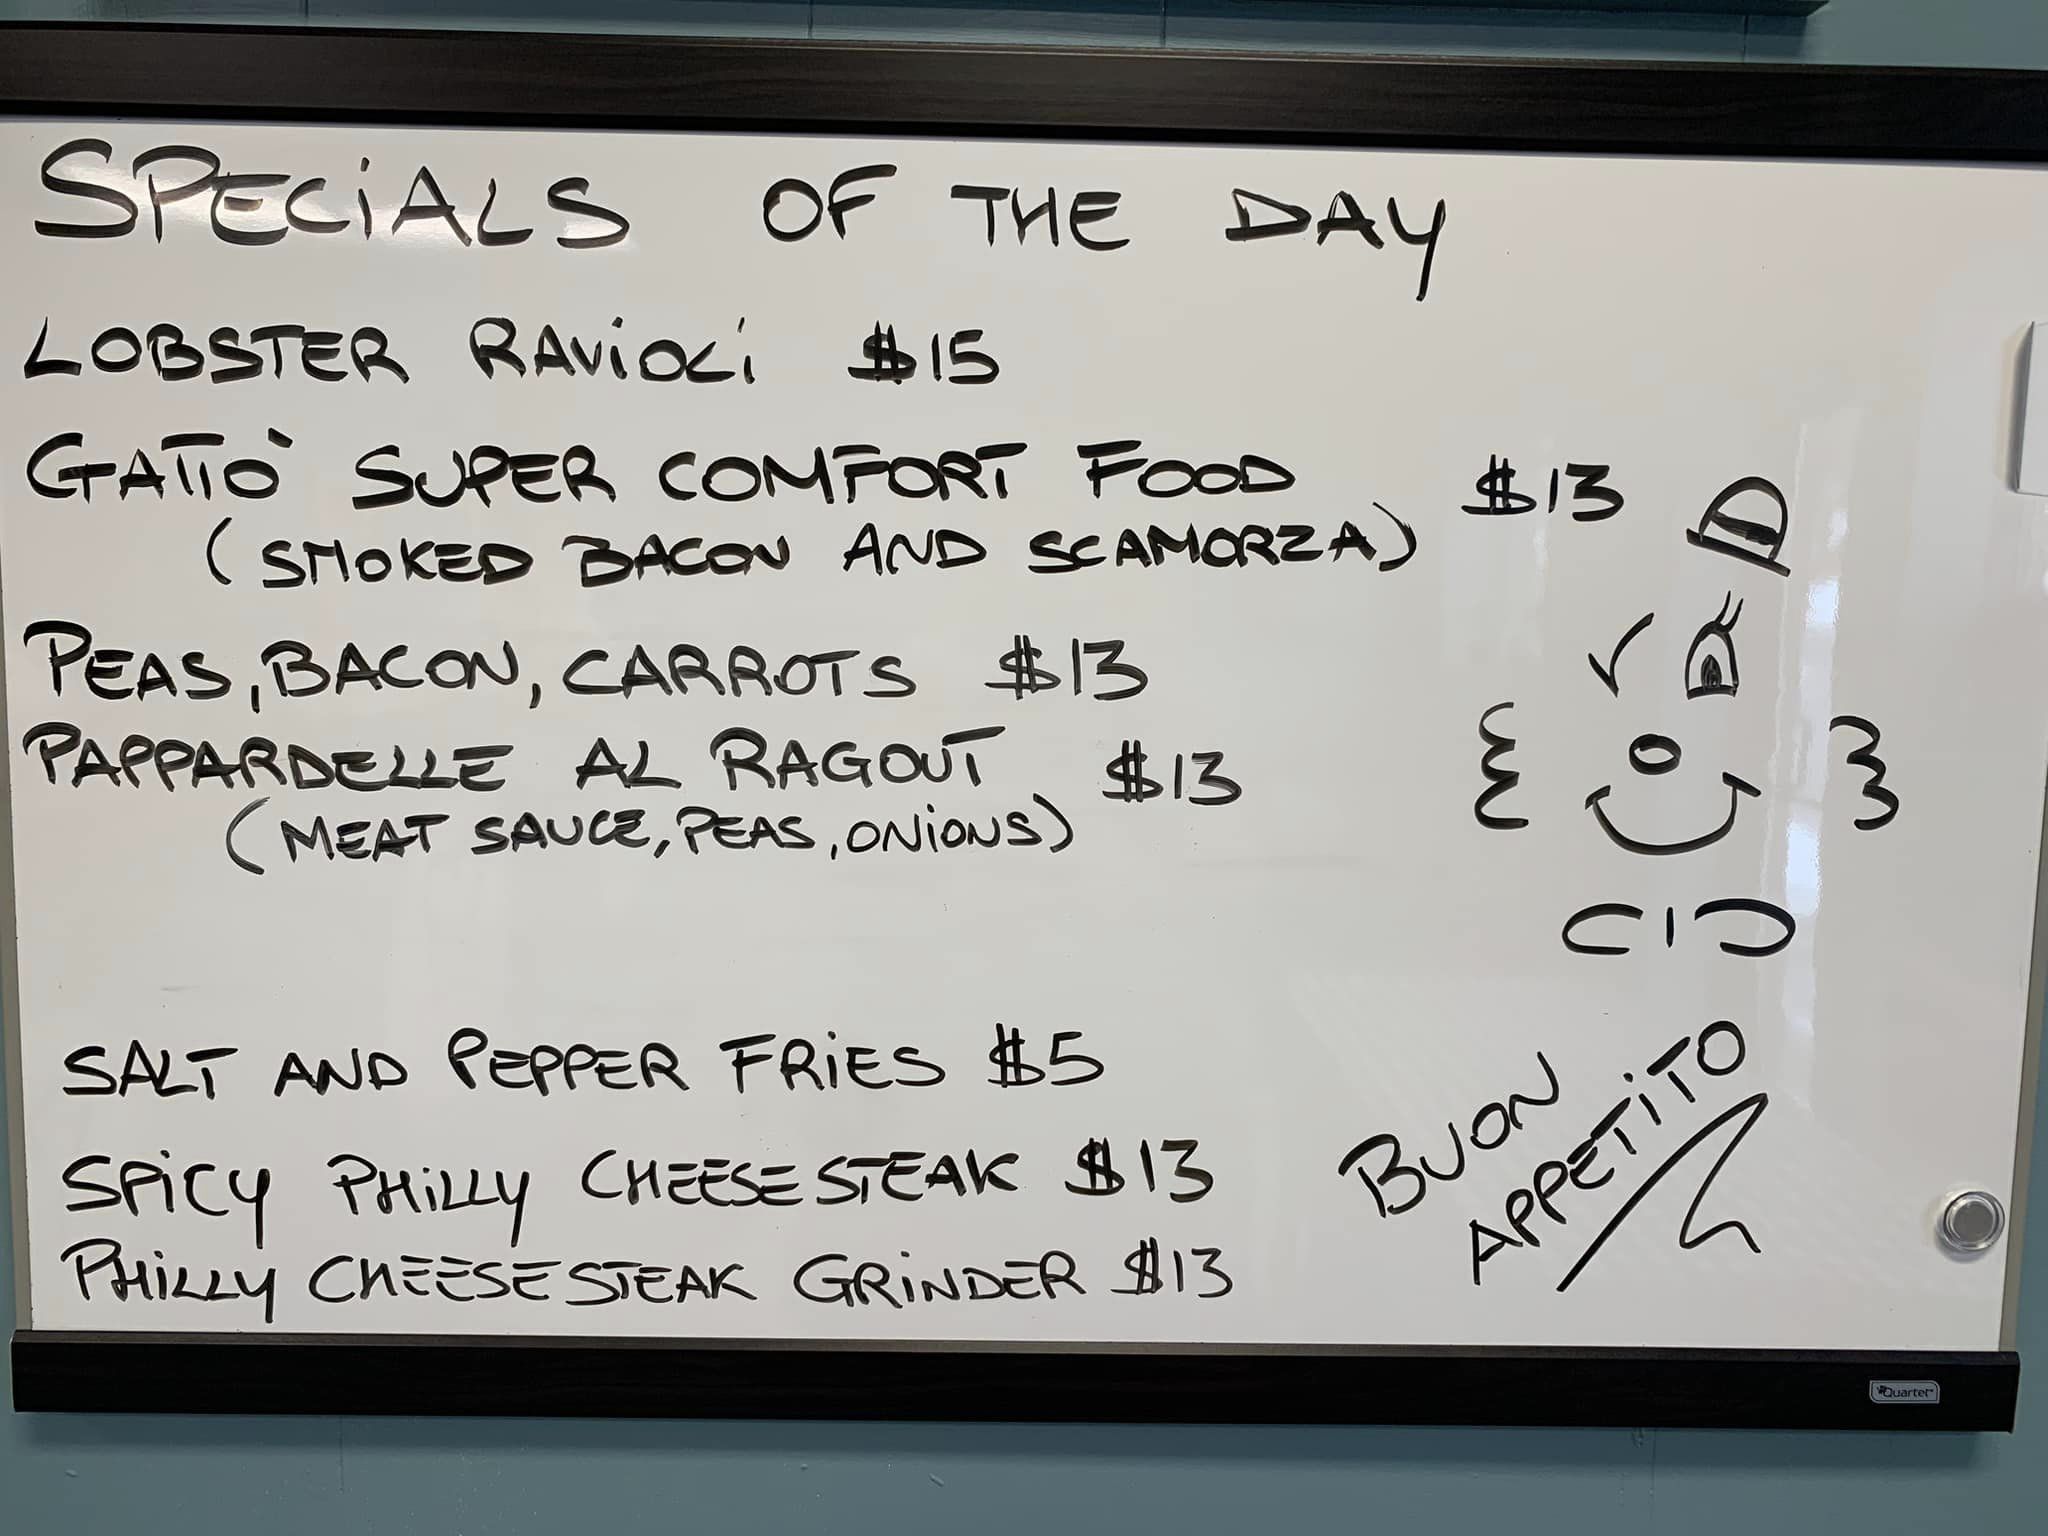 SPECiALS OF THE DAY
LOBSTER RAViOLi $15
GATTÒ SUPER COMFORT FOOD $13
(SMOKED BACON AND SCAMORZA)
PEAS, BACON, CARROTS $13
PAPPARDELLE AL RAGOUT $13
(MEAT SAUCE, PEAS, ONiONS)
SALT AND PEPPER FRiES $5
SPiCY PHiLLY CHEESESTEAK $13
PHiLLY CHEESESTEAK GRiNDER $13
BUON
APPETiTO
Quartet